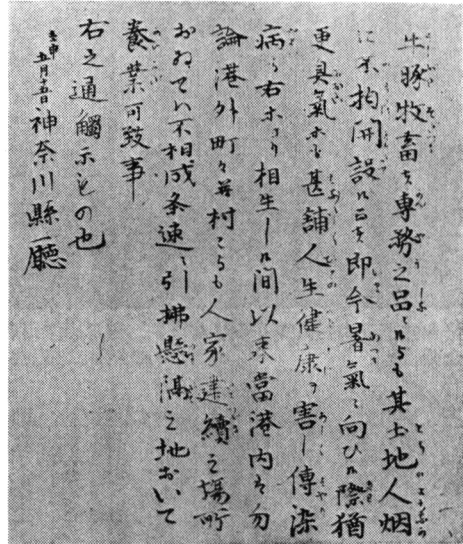 牛豚牧畜は専務之品ニ候らも其土地人烟
に不拘開設候ニ者即今暑氣ニ向ひ候際猶
更臭氣等も甚舗人生健康ヲ害し傳染
病も右等より相生し候間以来當港内は勿
論港外町々并村ニらも人家建續之場所
おゐてハ不相成条速ニ引拂懸隔之地おいて
養業可致事
右之通觸示もの也
壬申五月十五日 神奈川縣廳